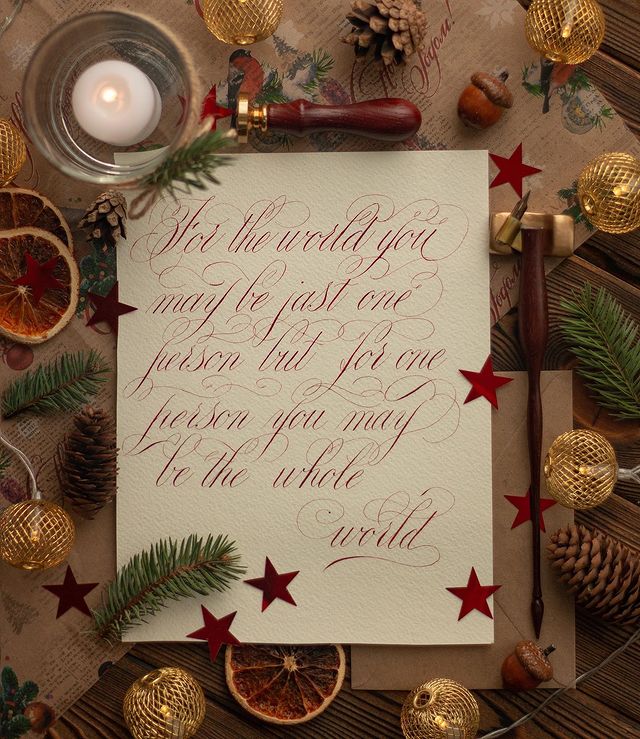 Годом!
For the world you
may be jast one
person but for one
person you may
be the whole
world
Годом!